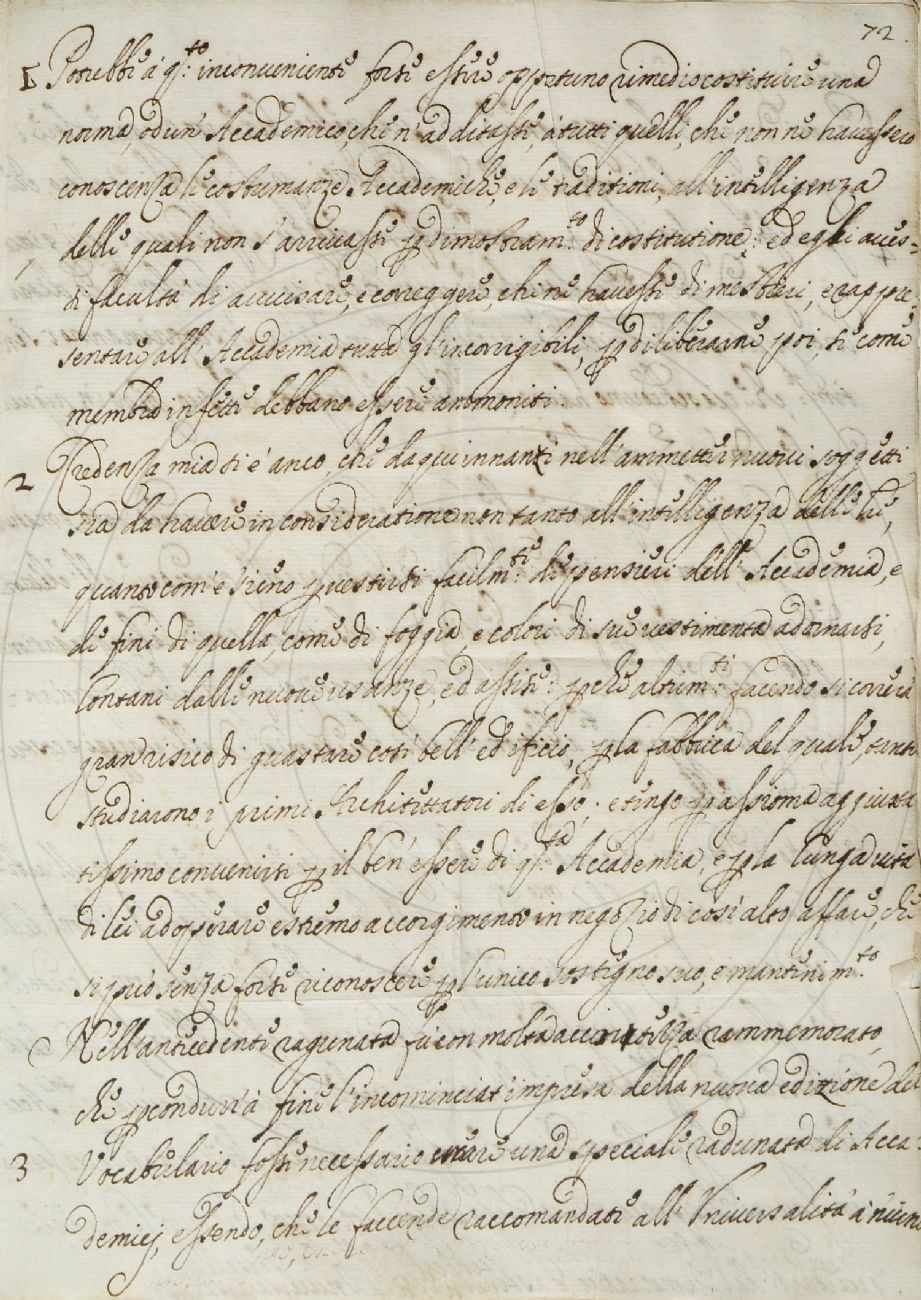 72
1 Potrebbe à q.to inconveniente forse essere opportuno rimedio costituire una
norma, od un' Accademico, che n' additasse, à tutti quelli, che non ne havessero
conoscenza le costumanze Accademiche, e le traditioni, all' intelligenza
delle quali non s' arrivasse p dimostram.to di costitutione; ed egli aves-
di facultà di avvisare, e correggere, chi ne havesse di mestieri, e rappre
sentare all' Accademia tutta gl' incorrigibili, p diliberarne poi, se come
membra infette debbano essere ammoniti.
2 Credenza mia si è anco, che da qui innanzi nell' ammetter nuovi soggetti
sia da havere in consideratione non tanto all' intelligenza delle
quanto com' e' sieno p vestirsi facilm.te di pensieri dell' Accademia, e
de fini di quella, come di foggia, e colori di sue vestimenta adornarsi,
lontani dalle nuove usanze, ed assise: p che altrim.ti facendo si correrà
gran risico di guastare così bell' edificio, p la fabbrica del quale, tanto
studiarono i primi Architettatori di esso; e tengo p assioma aggiusta
tissimo convenirsi p il ben' essere di q.ta Accademia, e p la lunga vita
di lei adoperare estremo accorgimento in negozio di così alto affare, che
si può senza forse riconoscere p l' unico sostegno suo, e mantenim.to
Nell' antecedente ragunata fu con molta accortezza rammemorato,
che p condurr' à fine l' incominciat' impresa della nuova edizione del
3 Vocabulario fosse necessario creare una speciale radunata di Acca-
demici, essendo, che le faccende raccomandate all' Universalità à niuno